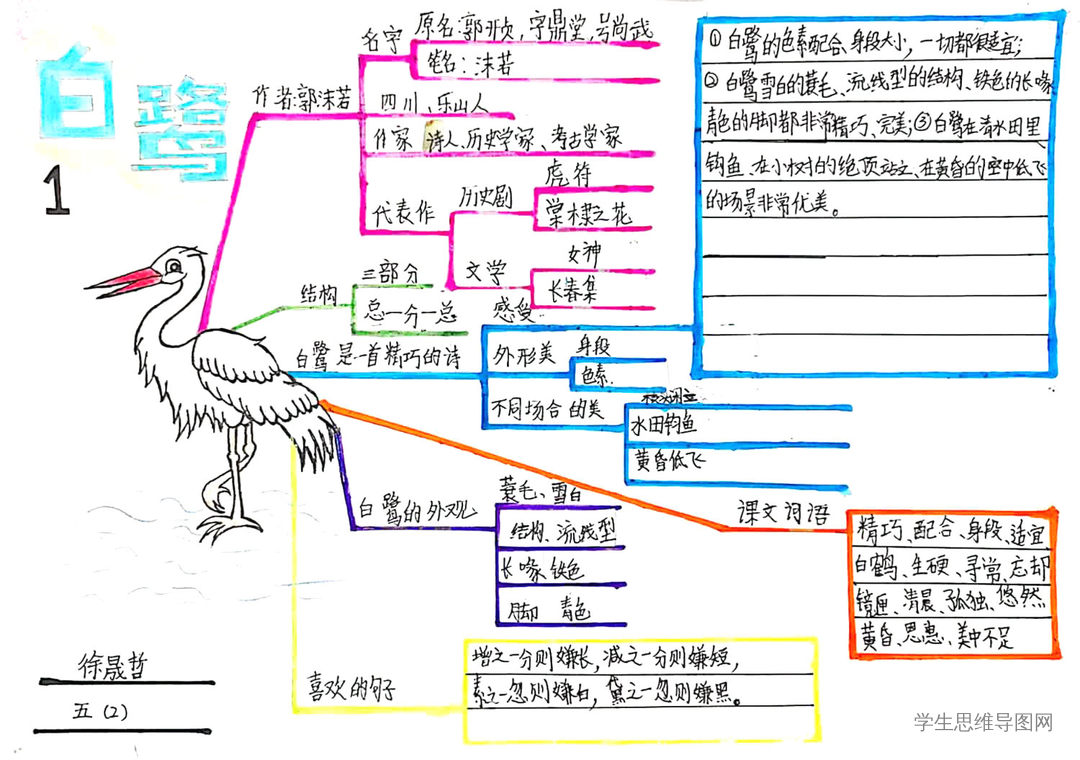 白鹭
1
作者:郭沫若
名字
原名:郭开贞,字鼎堂,号尚武
笔名:沫若
四川、乐山人
作家 诗人、历史学家、考古学家
代表作
历史剧
虎符
棠棣之花
文学
女神
长春集
结构
三部分
总一分一总
感受
白鹭是一首精巧的诗
外形美
身段
色素
不同场合的美
水田钓鱼
黄昏低飞
①白鹭的色素配合、身段大小,一切都很适宜;
②白鹭雪白的蓑毛、流线型的结构、铁色的长喙
青色的脚都非常精巧、完美;③白鹭在清水田里
钩鱼、在小树的绝顶站立、在黄昏的空中低飞
的场景非常优美。
白鹭的外观
蓑毛、雪白
结构、流线型
长喙 铁色
脚 青色
课文词语
精巧、配合、身段、适宜
白鹤、生硬、寻常、忘却
镜匣、清晨、孤独、悠然
黄昏、恩惠、美中不足
喜欢的句子
增之一分则嫌长,减之一分则嫌短,
素之一忽则嫌白,黛之一忽则嫌黑。
徐晟哲
五(2)
学生思维导图网